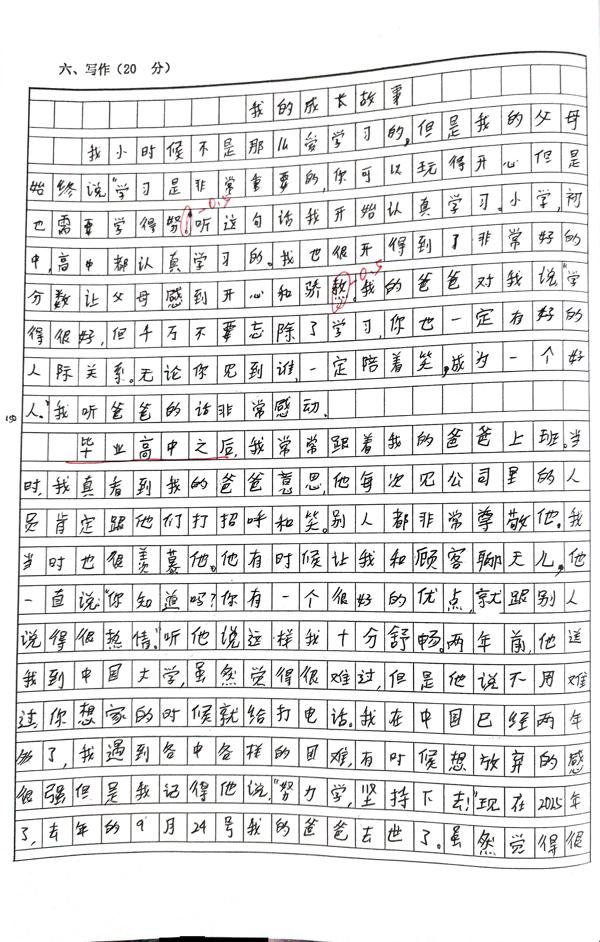 六、写作(20 分)
我的成长故事
我小时候不是那么爱学习的,但是我的父母
始终说"学习是非常重要的,你可以玩得开心但是
也需要学得努。听这句话我开始认真学习。小学,初 -0.5
中,高中都认真学习的。我也很开得到了非常好的
分数让父母感到开心和骄熬。我的爸爸对我说"学 -0.5
得很好,但千万不要忘除了学习,你也一定有好的
人际关系。无论你见到谁,一定陪着笑,成为一个好
人。"我听爸爸的话非常感动.
毕业高中之后,我常常跟着我的爸爸上班。当
时,我真看到我的爸爸意思,他每次见公司里的人
员肯定跟他们打招呼和笑。别人都非常尊敬他。我
当时也很羡慕他。他有时候让我和顾客聊天儿,他
一直说:"你知道吗?你有一个很好的优点,就跟别人
说得很热情."听他说这样我十分舒畅。两年前,他送
我到中国大学,虽然觉得很难过,但是他说不用难
过,你想家的时候就给打电话。我在中国已经两年
多了,我遇到各中各样的困难,有时候想放弃的感
很强但是我记得他说,"努力学,坚持下去!"现在2025年
了,去年的9月24号我的爸爸去世了。虽然觉得很
19